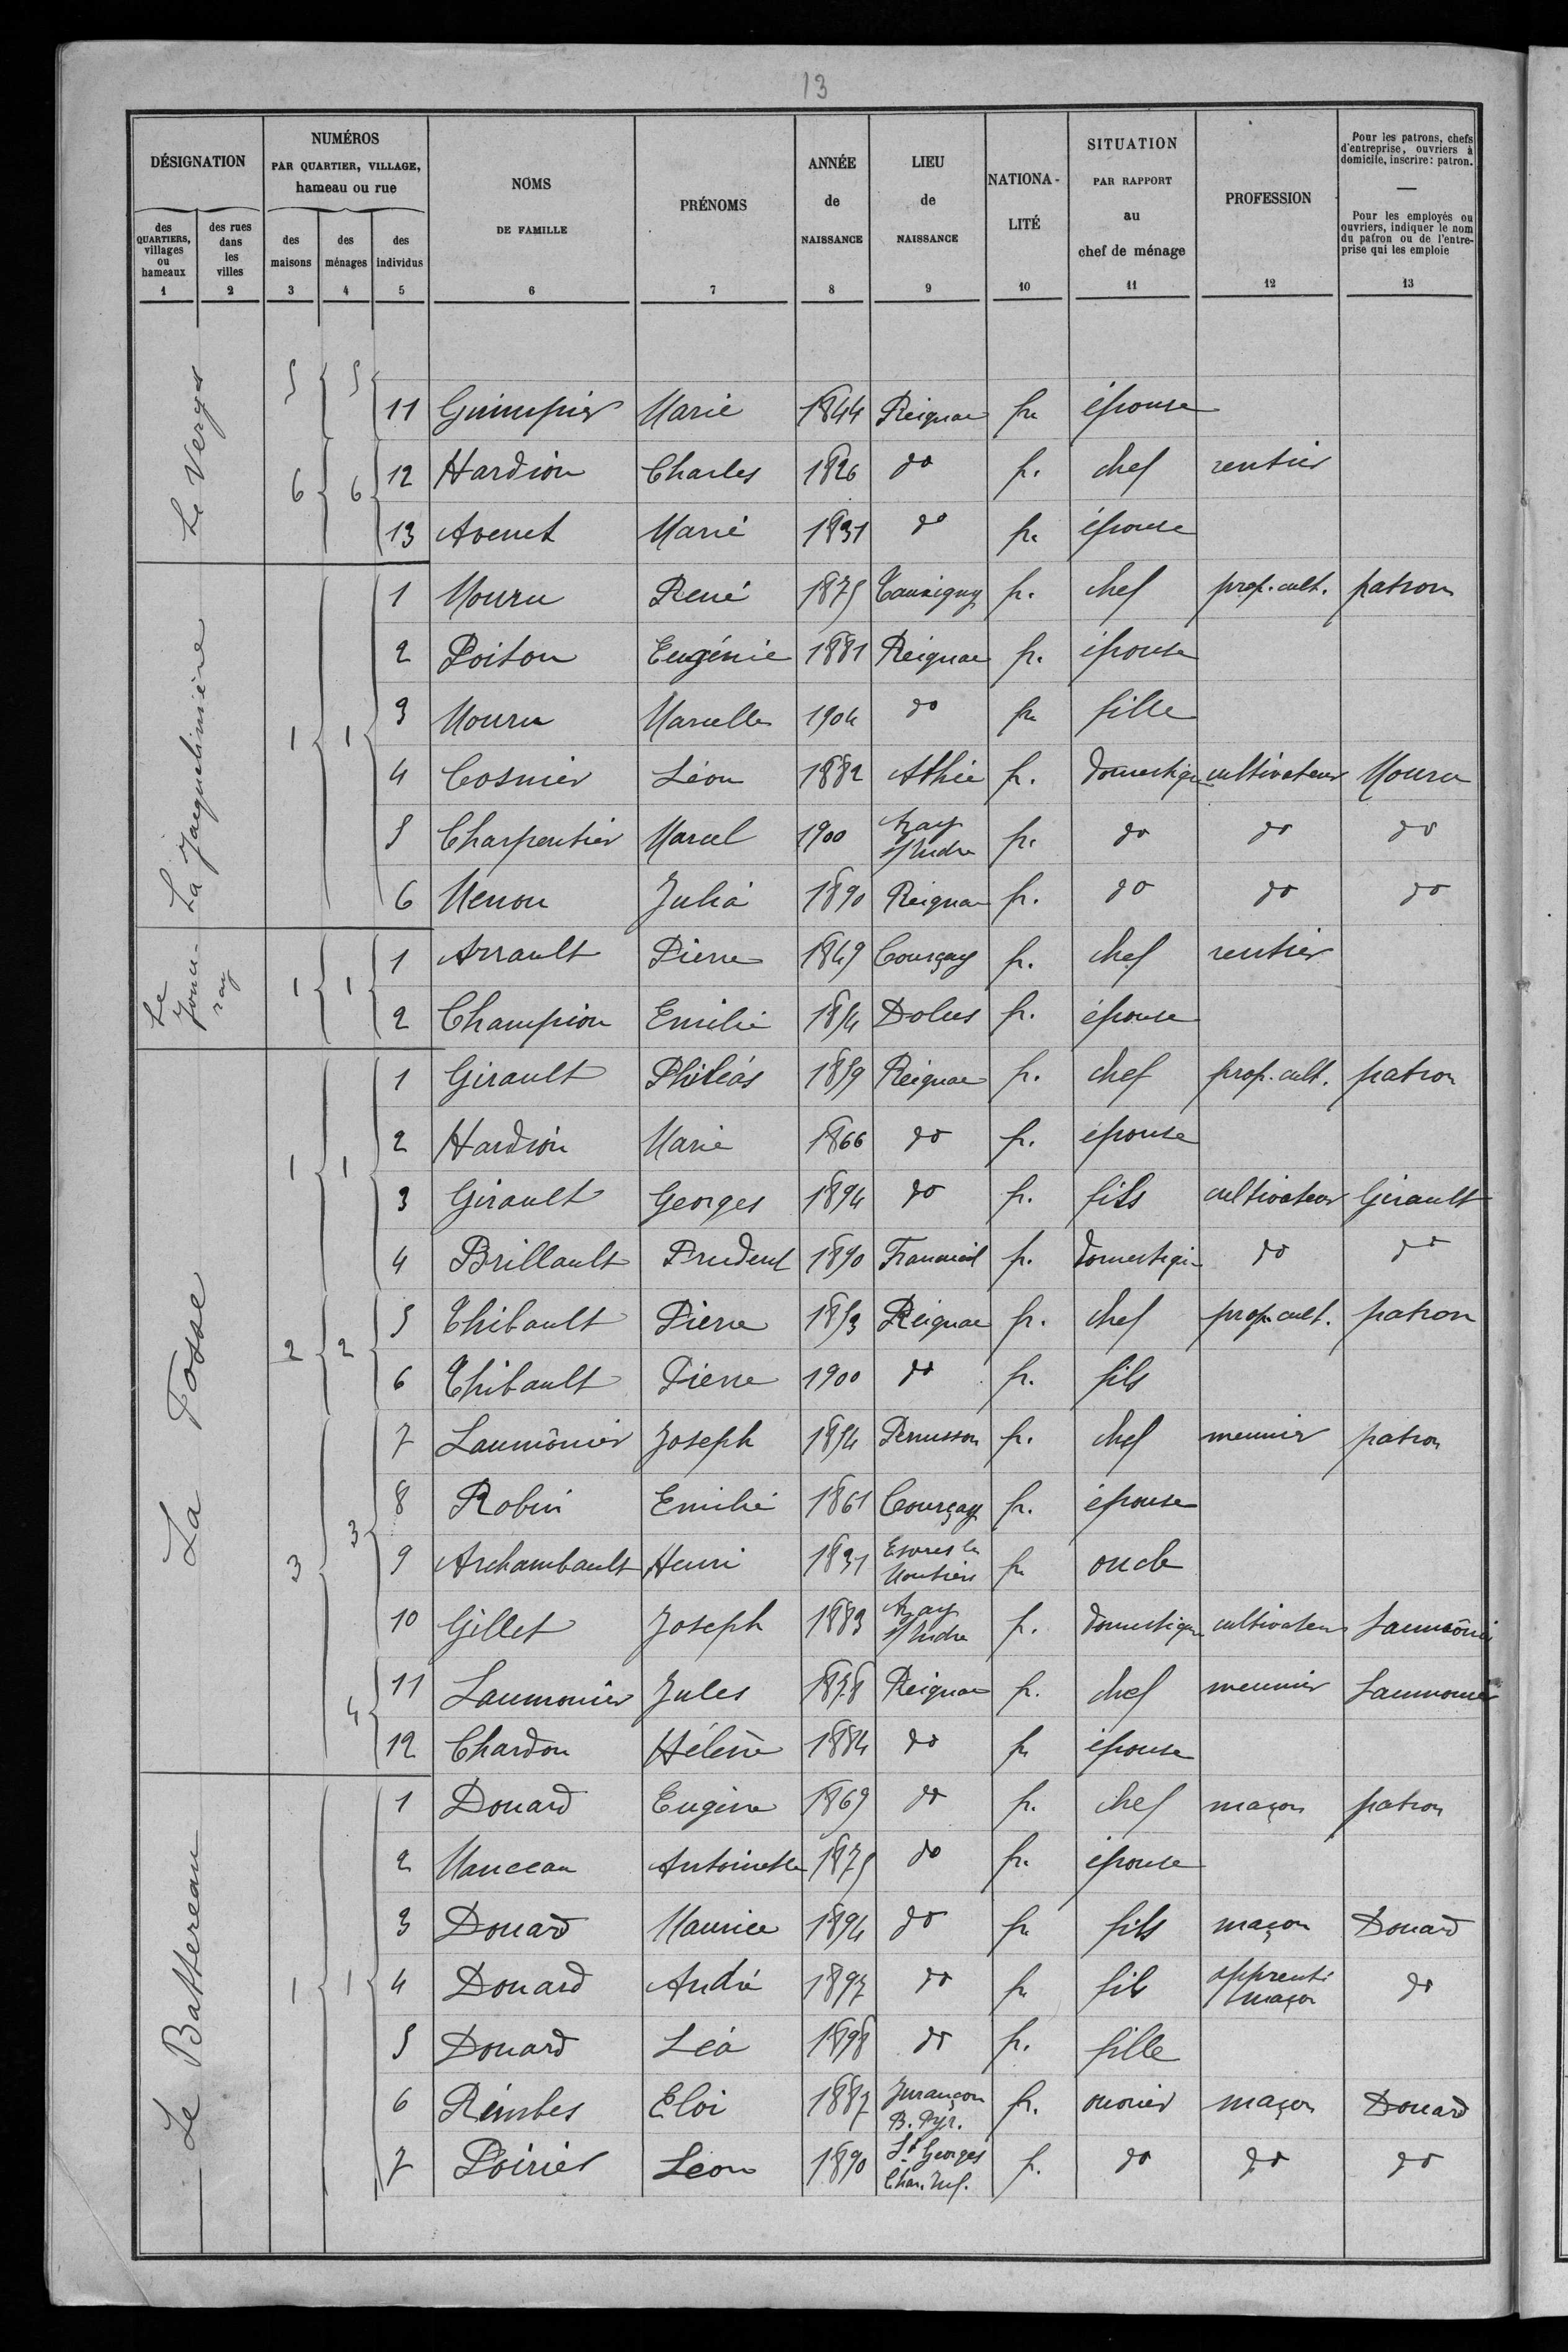 13
DÉSIGNATION
NUMÉROS
PAR QUARTIER, VILLAGE,
hameau ou rue
NOMS
DE FAMILLE
PRÉNOMS
ANNÉE
de
NAISSANCE
LIEU
de
NAISSANCE
NATIONA-
LITÉ
SITUATION
PAR RAPPORT
au
chef de ménage
PROFESSION
Pour les patrons, chefs
d'entreprise, ouvriers à
domicile, inscrire: patron.
Pour les employés ou
ouvriers, indiquer le nom
du patron ou de l'entre-
prise qui les emploie
des
QUARTIERS,
villages
ou
hameaux
des rues
dans
les
villes
des
maisons
des
ménages
des
individus
1 2 3 4 5 6 7 8 9 10 11 12 13
Le Verys
5 5 11 Guimpier Marie 1844 Reignac fr épouse
6 6 12 Hardion Charles 1826 do fr. chef rentier
13 Avenet Marie 1831 do fr. épouse
La Jaquelinière
1 Mouru René 1875 Tauxigny fr. chef prop. cult. patron
2 Poitou Eugénie 1881 Reignac fr. épouse
3 Mouru Marcelle 1904 do fr fille
1 1 4 Cosnier Léon 1882 Athée fr. domestique cultivateur Mouru
5 Charpentier Marcel 1900 Azay s/Indre fr. do do do
6 Menou Julia 1890 Reignac fr. do do do
Le Jonceray
1 1 1 Arrault Pierre 1849 Courçay fr. chef rentier
2 Champion Emilie 1854 Dolus fr. épouse
La Fosse
1 Girault Philéas 1859 Reignac fr. chef prop. cult. patron
2 Hardion Marie 1866 do fr. épouse
1 1 3 Girault Georges 1894 do fr. fils cultivateur Girault
4 Brillault Prudent 1890 Francueil fr. domestique do do
2 2 5 Thibault Pierre 1853 Reignac fr. chef prop. cult. patron
6 Thibault Pierre 1900 do fr. fils
7 Laumônier Joseph 1854 Perrusson fr. chef meunier patron
8 Robin Emilie 1861 Courçay fr. épouse
3 3 9 Archambault Henri 1831 Esvres le Moutiers fr oncle
10 Gillet Joseph 1883 Azay s/Indre fr. domestique cultivateur Laumônier
4 11 Laumonier Jules 1878 Reignac fr. chef meunier Laumonier
12 Chardon Hélène 1884 do fr épouse
Le Battereau
1 Douard Eugène 1869 do fr. chef maçon patron
2 Manceau Antoinette 1875 do fr. épouse
3 Douard Maurice 1894 do fr fils maçon Douard
1 1 4 Douard André 1897 do fr fils apprenti maçon do
5 Douard Léa 1898 do fr. fille
6 Rimbes Eloi 1887 Jurançon B. Pyr. fr. ouvrier maçon Douard
7 Poirier Léon 1890 St Georges Char. Inf. fr. do do do